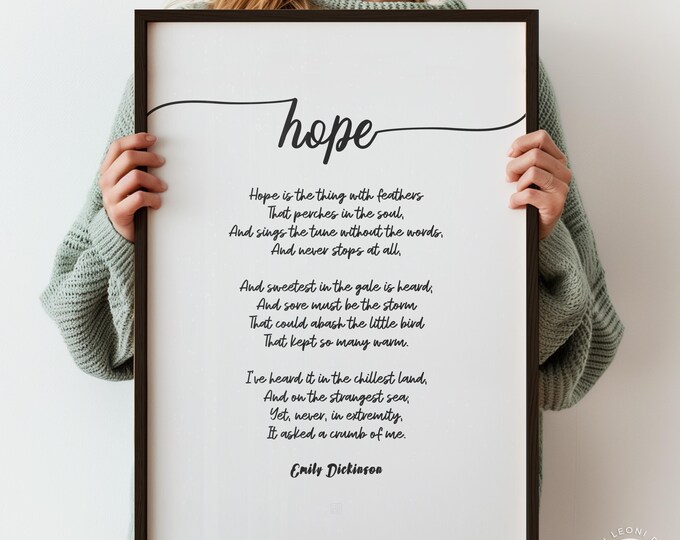 hope
Hope is the thing with feathers
That perches in the soul,
And sings the tune without the words,
And never stops at all,
And sweetest in the gale is heard,
And sore must be the storm
That could abash the little bird
That kept so many warm.
I've heard it in the chillest land,
And on the strangest sea,
Yet, never, in extremity,
It asked a crumb of me.
Emily Dickinson
LEONI